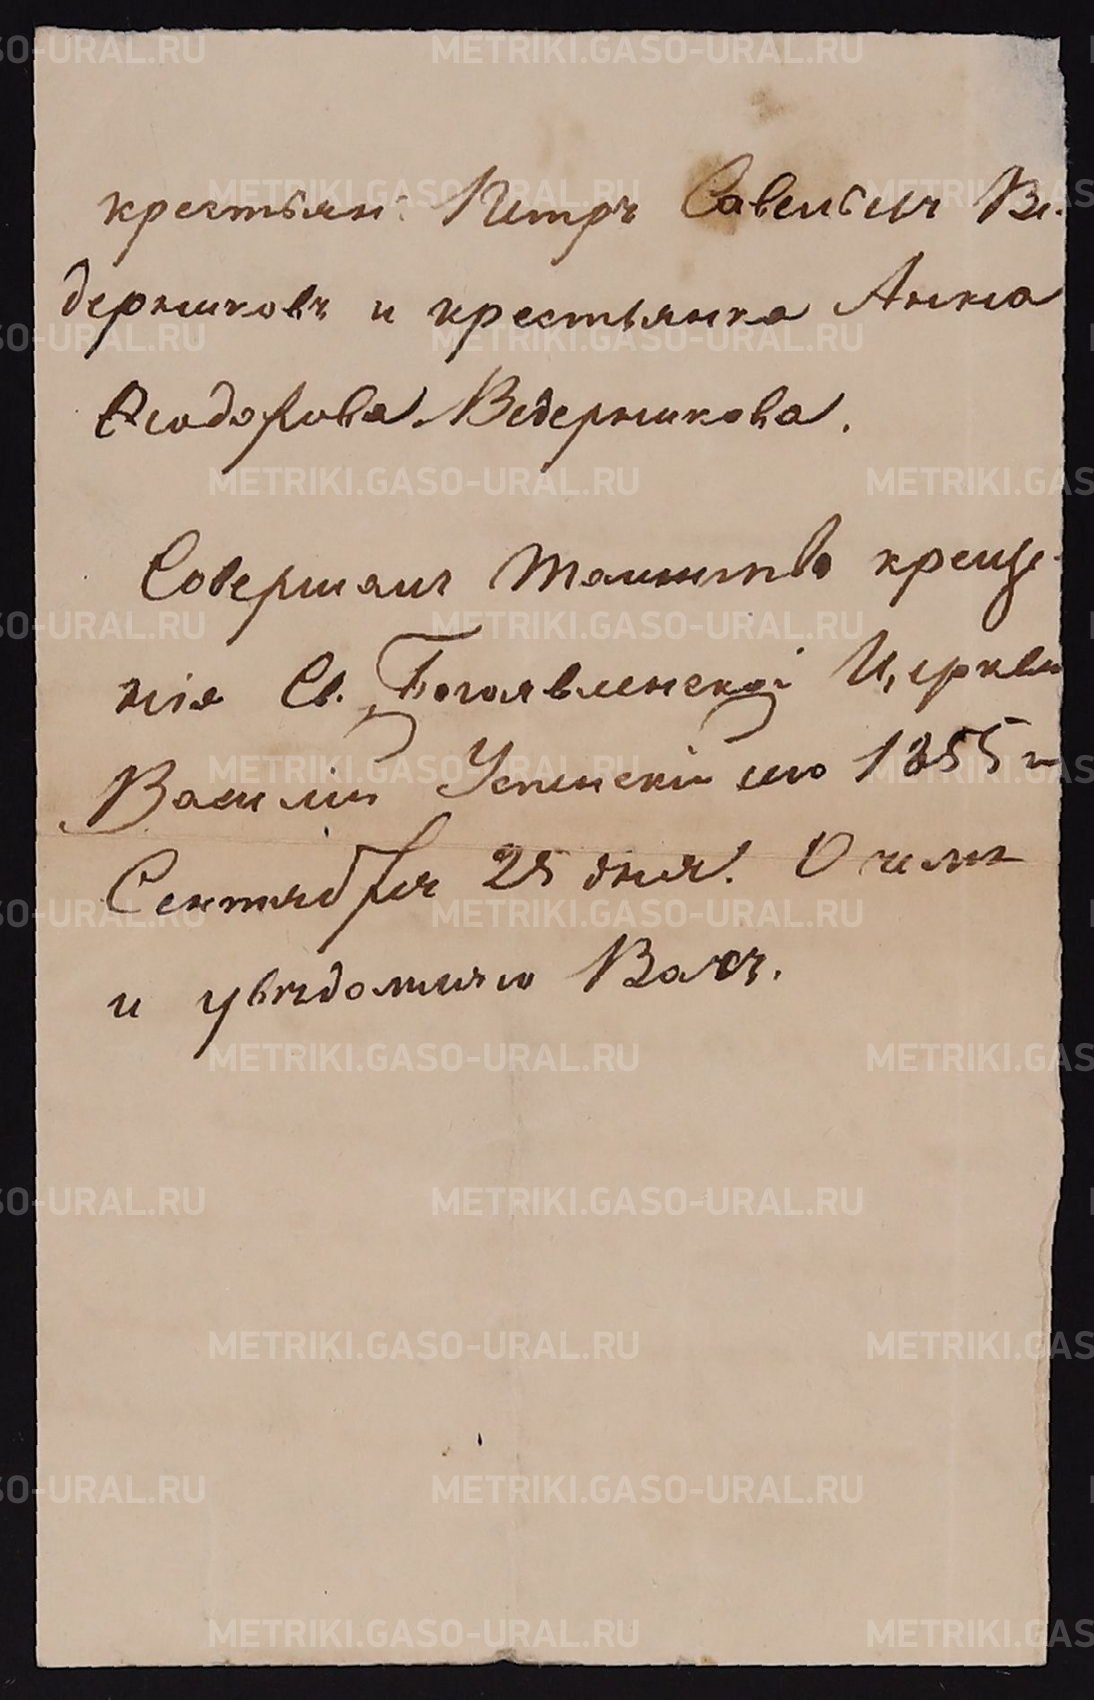 крестьян. Петръ Савельичъ Ве-
дерниковъ и крестьянка Анна
Ѳеодорова Ведерникова.
Совершалъ таинство креще-
нія Св. Богоявленской Церкви
Василій Успенскій 1855 г
Сентября 25 дня. О чемъ
и увѣдомляю Васъ.
METRIKI.GASO-URAL.RU